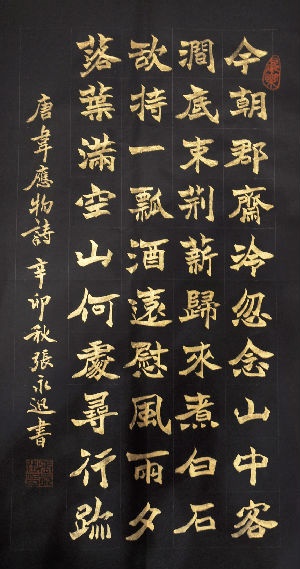 今朝郡齋冷忽念山中客
澗底束荊薪歸來煮白石
欲持一瓢酒遠慰風雨夕
落葉滿空山何處尋行跡
唐韋應物詩 辛卯秋張永迅書